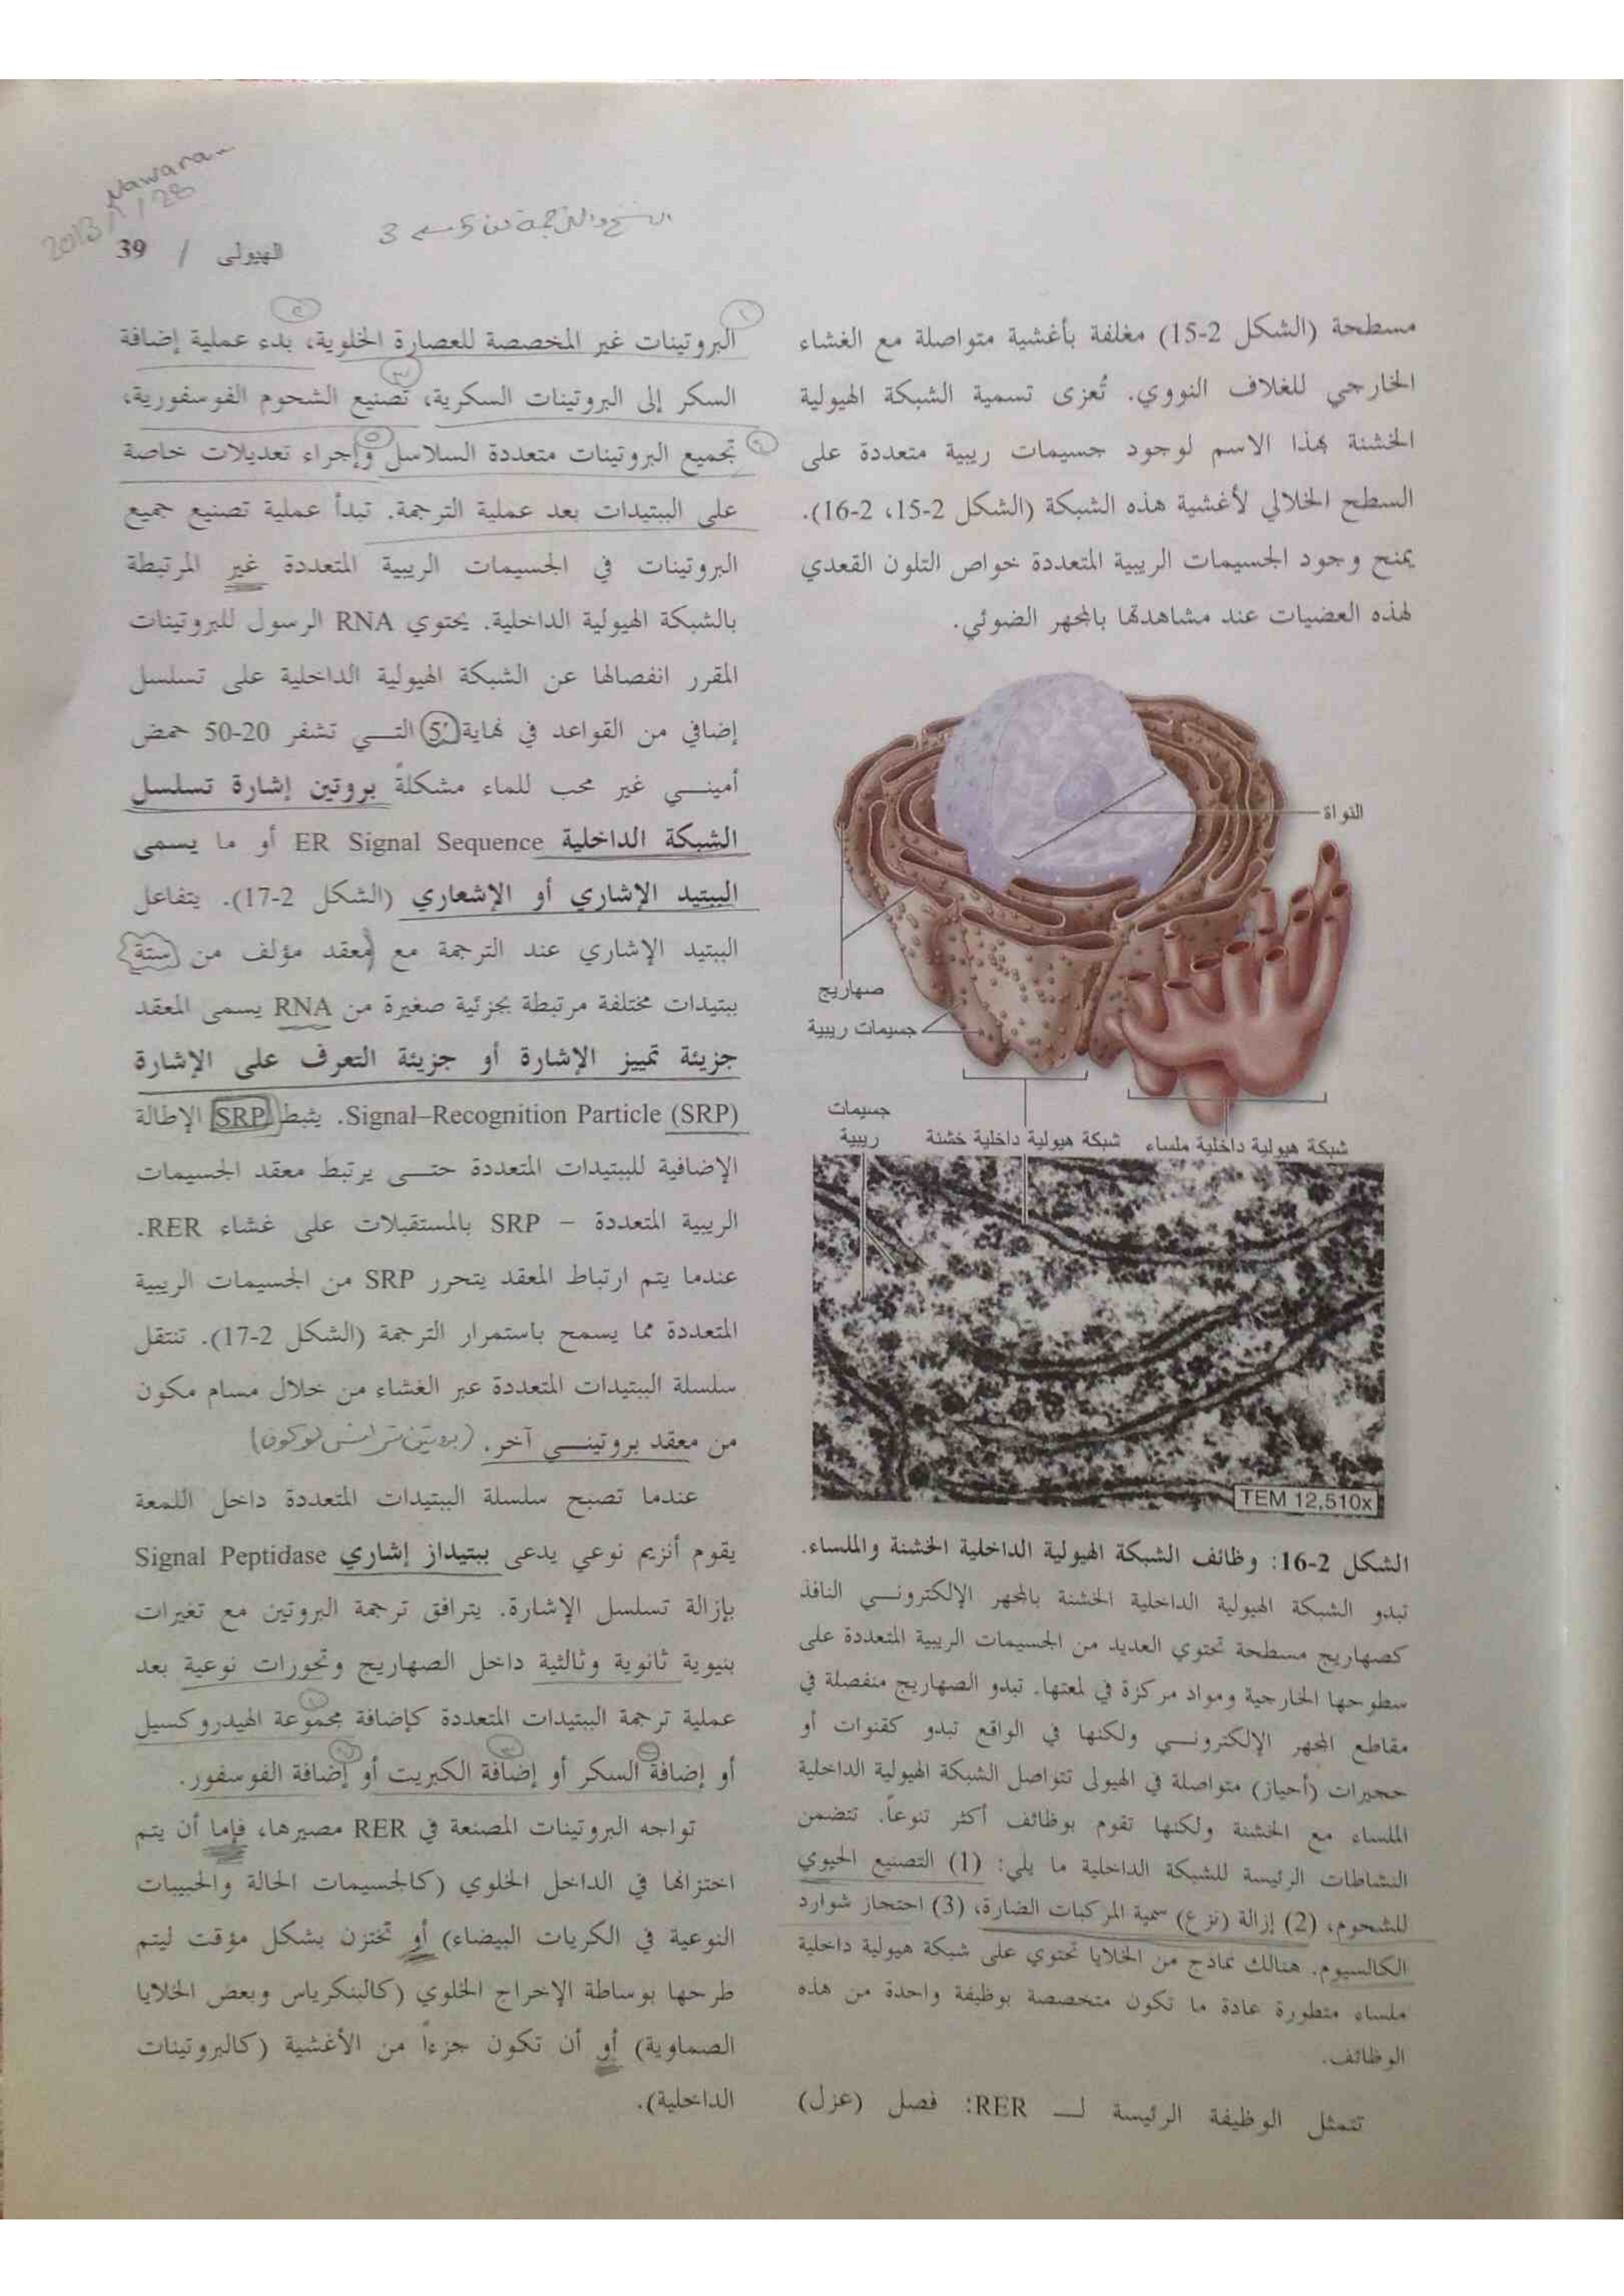 Nawara
2013/1/28
النسخ والترجمة من 5 — 3
الهيولى / 39
مسطحة (الشكل 2-15) مغلفة بأغشية متواصلة مع الغشاء
الخارجي للغلاف النووي. تُعزى تسمية الشبكة الهيولية
الخشنة بهذا الاسم لوجود جسيمات ريبية متعددة على
السطح الخلالي لأغشية هذه الشبكة (الشكل 2-15، 2-16).
يمنح وجود الجسيمات الريبية المتعددة خواص التلون القعدي
لهذه العضيات عند مشاهدتها بالمجهر الضوئي.
النواة
صهاريج
جسيمات ريبية
جسيمات
ريبية
شبكة هيولية داخلية خشنة
شبكة هيولية داخلية ملساء
TEM 12,510x
الشكل 2-16: وظائف الشبكة الهيولية الداخلية الخشنة والملساء.
تبدو الشبكة الهيولية الداخلية الخشنة بالمجهر الإلكترونـــي النافذ
كصهاريج مسطحة تحتوي العديد من الجسيمات الريبية المتعددة على
سطوحها الخارجية ومواد مركزة في لمعتها. تبدو الصهاريج منفصلة في
مقاطع المجهر الإلكترونـــي ولكنها في الواقع تبدو كقنوات أو
حجيرات (أحياز) متواصلة في الهيولى تتواصل الشبكة الهيولية الداخلية
الملساء مع الخشنة ولكنها تقوم بوظائف أكثر تنوعاً. تتضمن
النشاطات الرئيسة للشبكة الداخلية ما يلي: (1) التصنيع الحيوي
للشحوم، (2) إزالة (نزع) سمية المركبات الضارة، (3) احتجاز شوارد
الكالسيوم. هنالك نماذج من الخلايا تحتوي على شبكة هيولية داخلية
ملساء متطورة عادة ما تكون متخصصة بوظيفة واحدة من هذه
الوظائف.
تتمثل الوظيفة الرئيسة لـــ RER: فصل (عزل)
البروتينات غير المخصصة للعصارة الخلوية، بدء عملية إضافة
السكر إلى البروتينات السكرية، تصنيع الشحوم الفوسفورية،
تجميع البروتينات متعددة السلاسل وإجراء تعديلات خاصة
على الببتيدات بعد عملية الترجمة. تبدأ عملية تصنيع جميع
البروتينات في الجسيمات الريبية المتعددة غير المرتبطة
بالشبكة الهيولية الداخلية. يحتوي RNA الرسول للبروتينات
المقرر انفصالها عن الشبكة الهيولية الداخلية على تسلسل
إضافي من القواعد في نهاية 5' التـــي تشفر 20-50 حمض
أمينـــي غير محب للماء مشكلةً بروتين إشارة تسلسل
الشبكة الداخلية ER Signal Sequence أو ما يسمى
الببتيد الإشاري أو الإشعاري (الشكل 2-17). يتفاعل
الببتيد الإشاري عند الترجمة مع معقد مؤلف من ستة
ببتيدات مختلفة مرتبطة بجزئية صغيرة من RNA يسمى المعقد
جزيئة تمييز الإشارة أو جزيئة التعرف على الإشارة
Signal–Recognition Particle (SRP). يثبط SRP الإطالة
الإضافية للببتيدات المتعددة حتـــى يرتبط معقد الجسيمات
الريبية المتعددة – SRP بالمستقبلات على غشاء RER.
عندما يتم ارتباط المعقد يتحرر SRP من الجسيمات الريبية
المتعددة مما يسمح باستمرار الترجمة (الشكل 2-17). تنتقل
سلسلة الببتيدات المتعددة عبر الغشاء من خلال مسام مكون
من معقد بروتينـــي آخر. (بروتين ترانس لوكون)
عندما تصبح سلسلة الببتيدات المتعددة داخل اللمعة
يقوم أنزيم نوعي يدعى ببتيداز إشاري Signal Peptidase
بإزالة تسلسل الإشارة. يترافق ترجمة البروتين مع تغيرات
بنيوية ثانوية وثالثية داخل الصهاريج وتحورات نوعية بعد
عملية ترجمة الببتيدات المتعددة كإضافة مجموعة الهيدروكسيل
أو إضافة السكر أو إضافة الكبريت أو إضافة الفوسفور.
تواجه البروتينات المصنعة في RER مصيرها، فإما أن يتم
اختزالها في الداخل الخلوي (كالجسيمات الحالة والحبيبات
النوعية في الكريات البيضاء) أو تختزن بشكل مؤقت ليتم
طرحها بوساطة الإخراج الخلوي (كالبنكرياس وبعض الخلايا
الصماوية) أو أن تكون جزءاً من الأغشية (كالبروتينات
الداخلية).